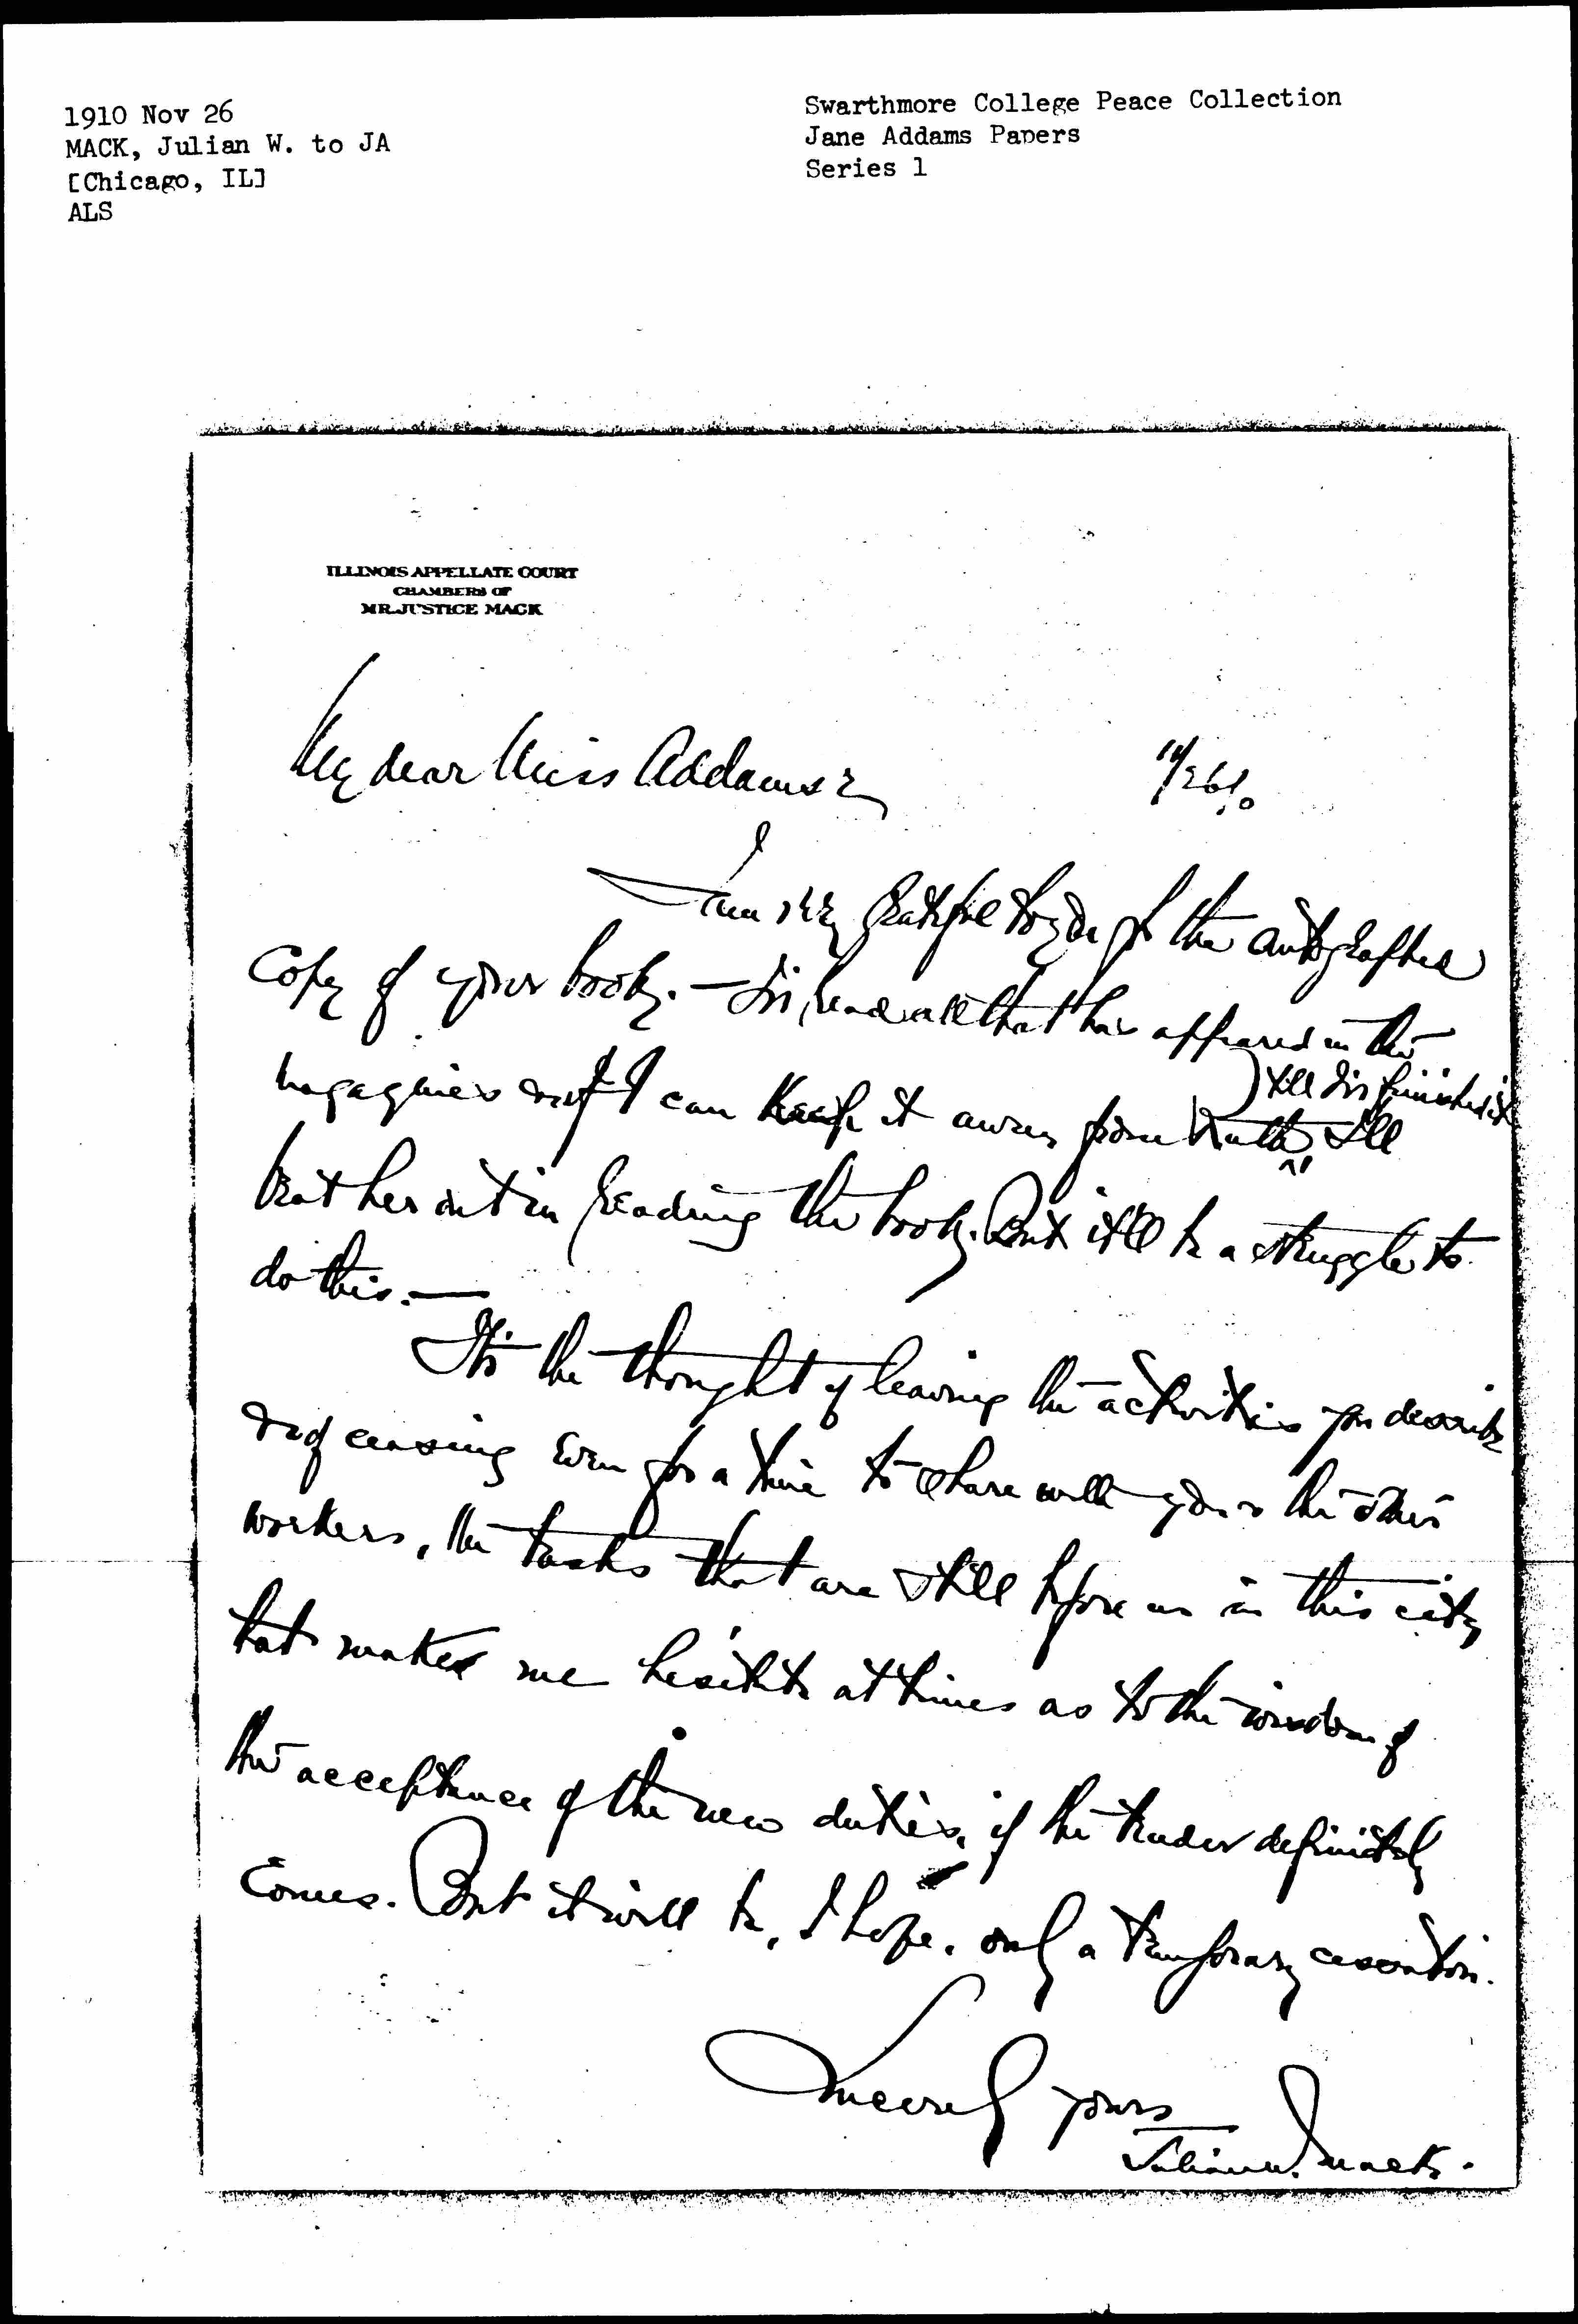 1910 Nov 26
MACK, Julian W. to JA
[Chicago, IL]
ALS
Swarthmore College Peace Collection
Jane Addams Papers
Series 1
ILLINOIS APPELLATE COURT
CHAMBERS OF
MR. JUSTICE MACK
My dear Miss Addams
11/26/10
I
am very grateful to you for the autographed
copy of your book. — I've read all that has appeared in the
magazines and if I can keep it away from Ruth till I've finished it I'll
beat her out in reading the book. But it'll be a struggle to
do this. —
It's the thought of leaving the activities you describe
and of ceasing even for a time to share with you & the other
workers, the tasks that are still before us in this city
that makes me hesitate at times as to the wisdom of
the acceptance of the new duties, if the tender definitely
comes. But it will be, I hope, only a temporary cessation.
Sincerely yours
Julian W. Mack.